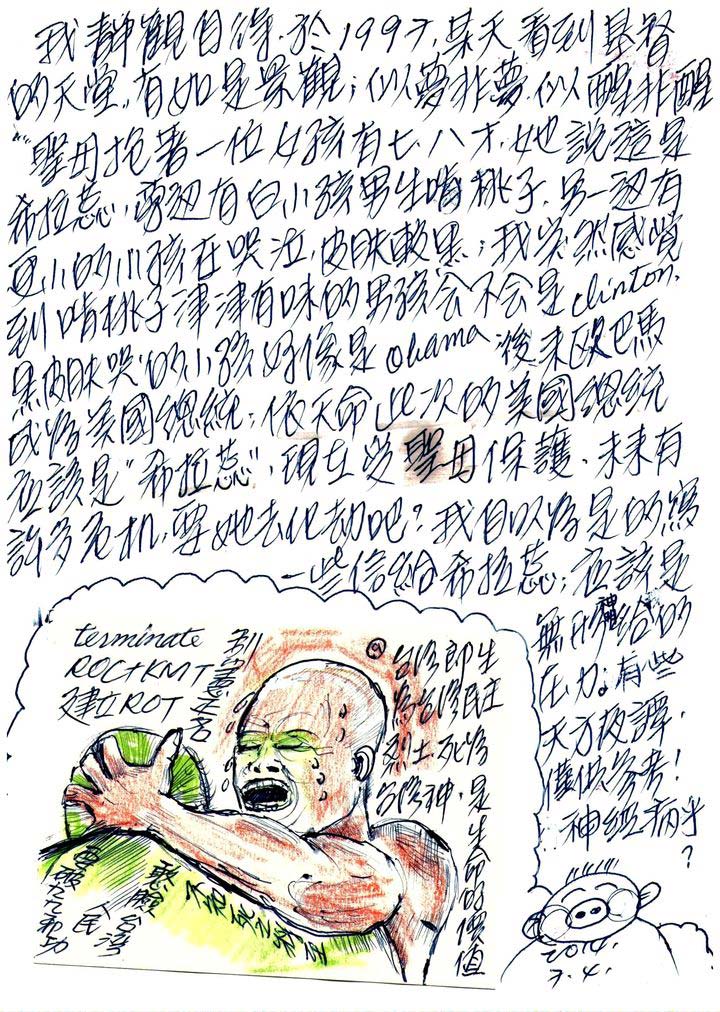 我靜觀自得,於1997,某天看到基督
的天堂,有如是景觀;似夢非夢,似醒非醒
"聖母抱著一位女孩有七、八才,她說這是
希拉蕊,旁邊有白小孩男生啃桃子,另一邊有
更小的小孩在哭泣,皮膚較黑;我突然感覺
到啃桃子津津有味的男孩會不會是clinton,
黑皮膚哭的小孩好像是obama 後來歐巴馬
成為美國總統;依天命此次的美國總統
應該是"希拉蕊",現在受聖母保護,未來有
許多危机,要她去化劫吧?我自以為是的寫
一些信給希拉蕊;應該是
無形神給的
压力。有些
天方夜譚,
僅供參考!
神經病乎
?
terminate
ROC+KMT
建立ROT
台灣即生
為台灣民主
烈士死為
台灣神,是
生命的價值
台灣
人民
2014.
7.4.